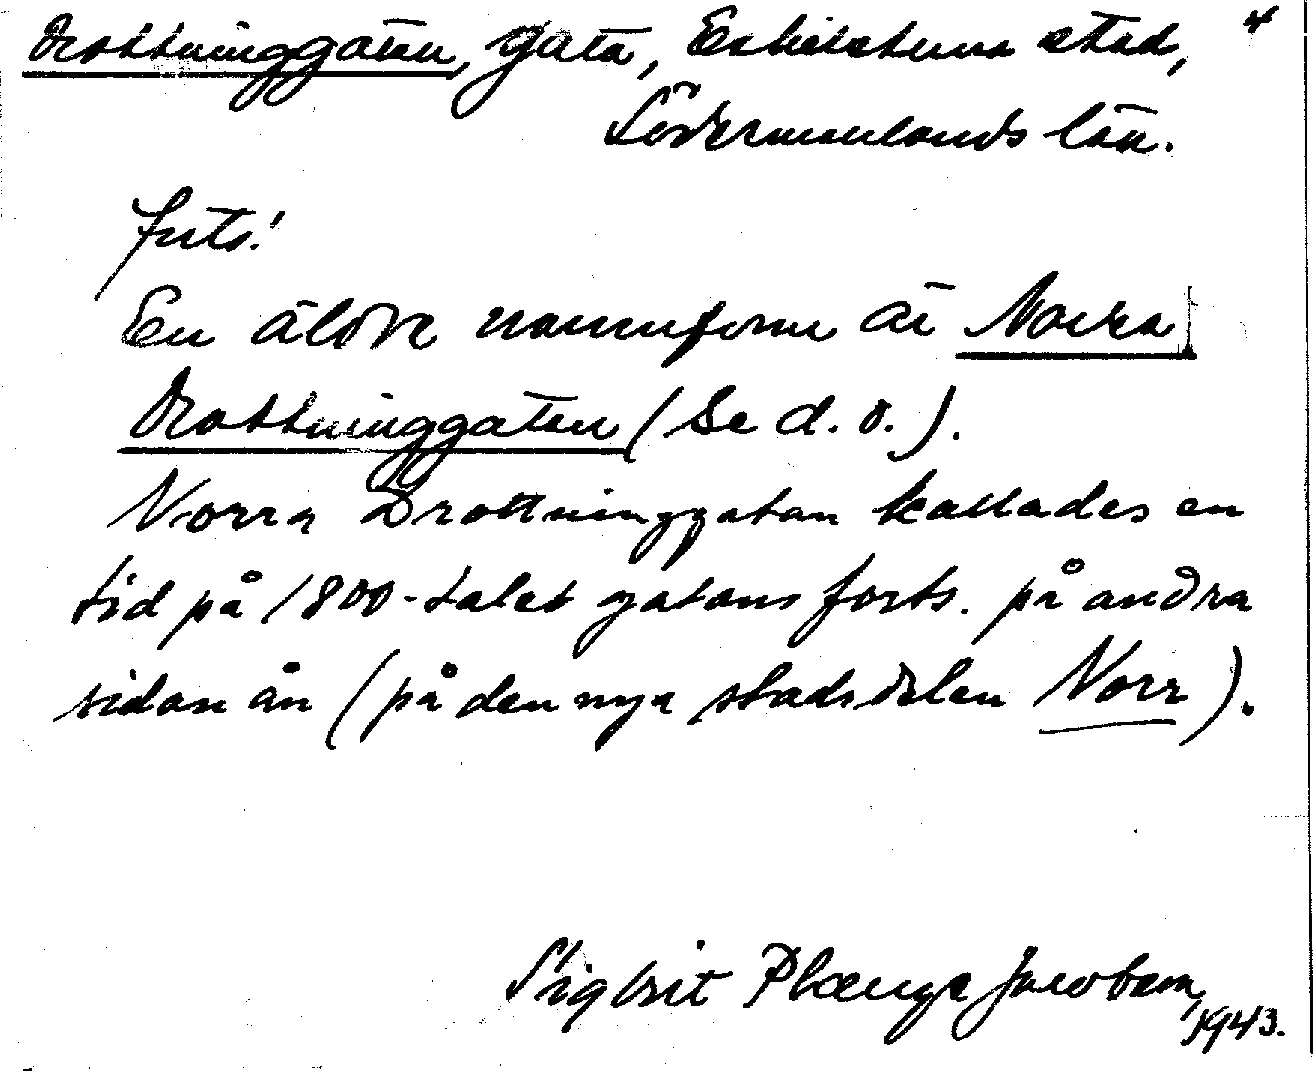 Drottninggatan, gata, Eskilstuna stad, 4
Södermanlands län.
forts.!
En äldre namnform är Norra
Drottninggatan (Se d. o.).
Norra Drottninggatan kallades en
tid på 1800-talet gatans forts. på andra
sidan ån (på den nya stadsdelen Norr).
Sigbrit Plænge Jacobson,
1943.